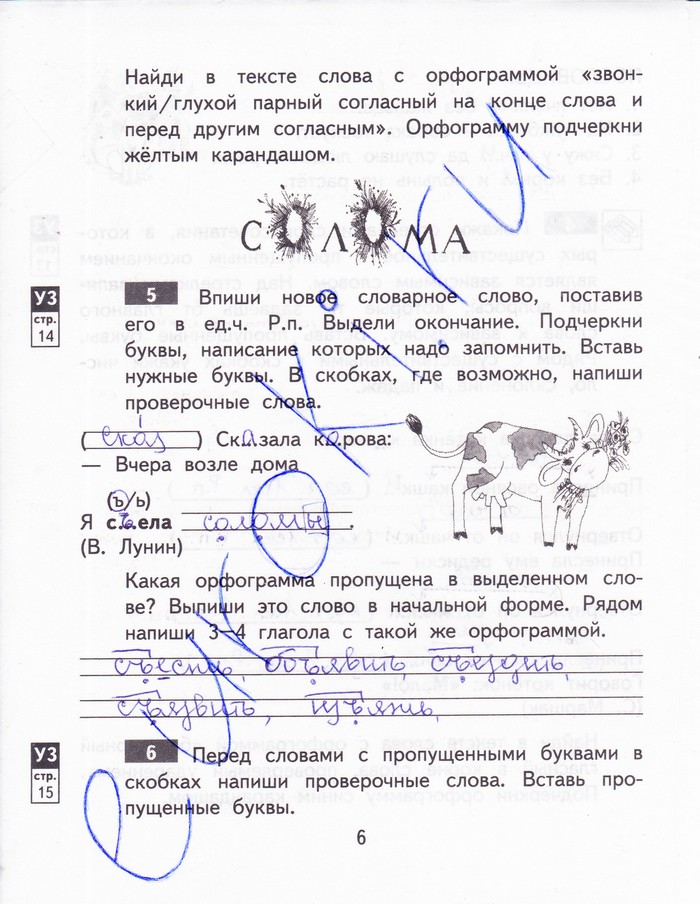 Найди в тексте слова с орфограммой «звон-
кий/глухой парный согласный на конце слова и
перед другим согласным». Орфограмму подчеркни
жёлтым карандашом.
СОЛОМА
УЗ
стр.
14
5 Впиши новое словарное слово, поставив
его в ед.ч. Р.п. Выдели окончание. Подчеркни
буквы, написание которых надо запомнить. Вставь
нужные буквы. В скобках, где возможно, напиши
проверочные слова.
(сказ) Сказала корова:
— Вчера возле дома
(ъ/ь)
Я съела соломы.
(В. Лунин)
Какая орфограмма пропущена в выделенном сло-
ве? Выпиши это слово в начальной форме. Рядом
напиши 3–4 глагола с такой же орфограммой.
съесть, объявить съездить,
съязвить, изъять,
УЗ
стр.
15
6 Перед словами с пропущенными буквами в
скобках напиши проверочные слова. Вставь про-
пущенные буквы.
6